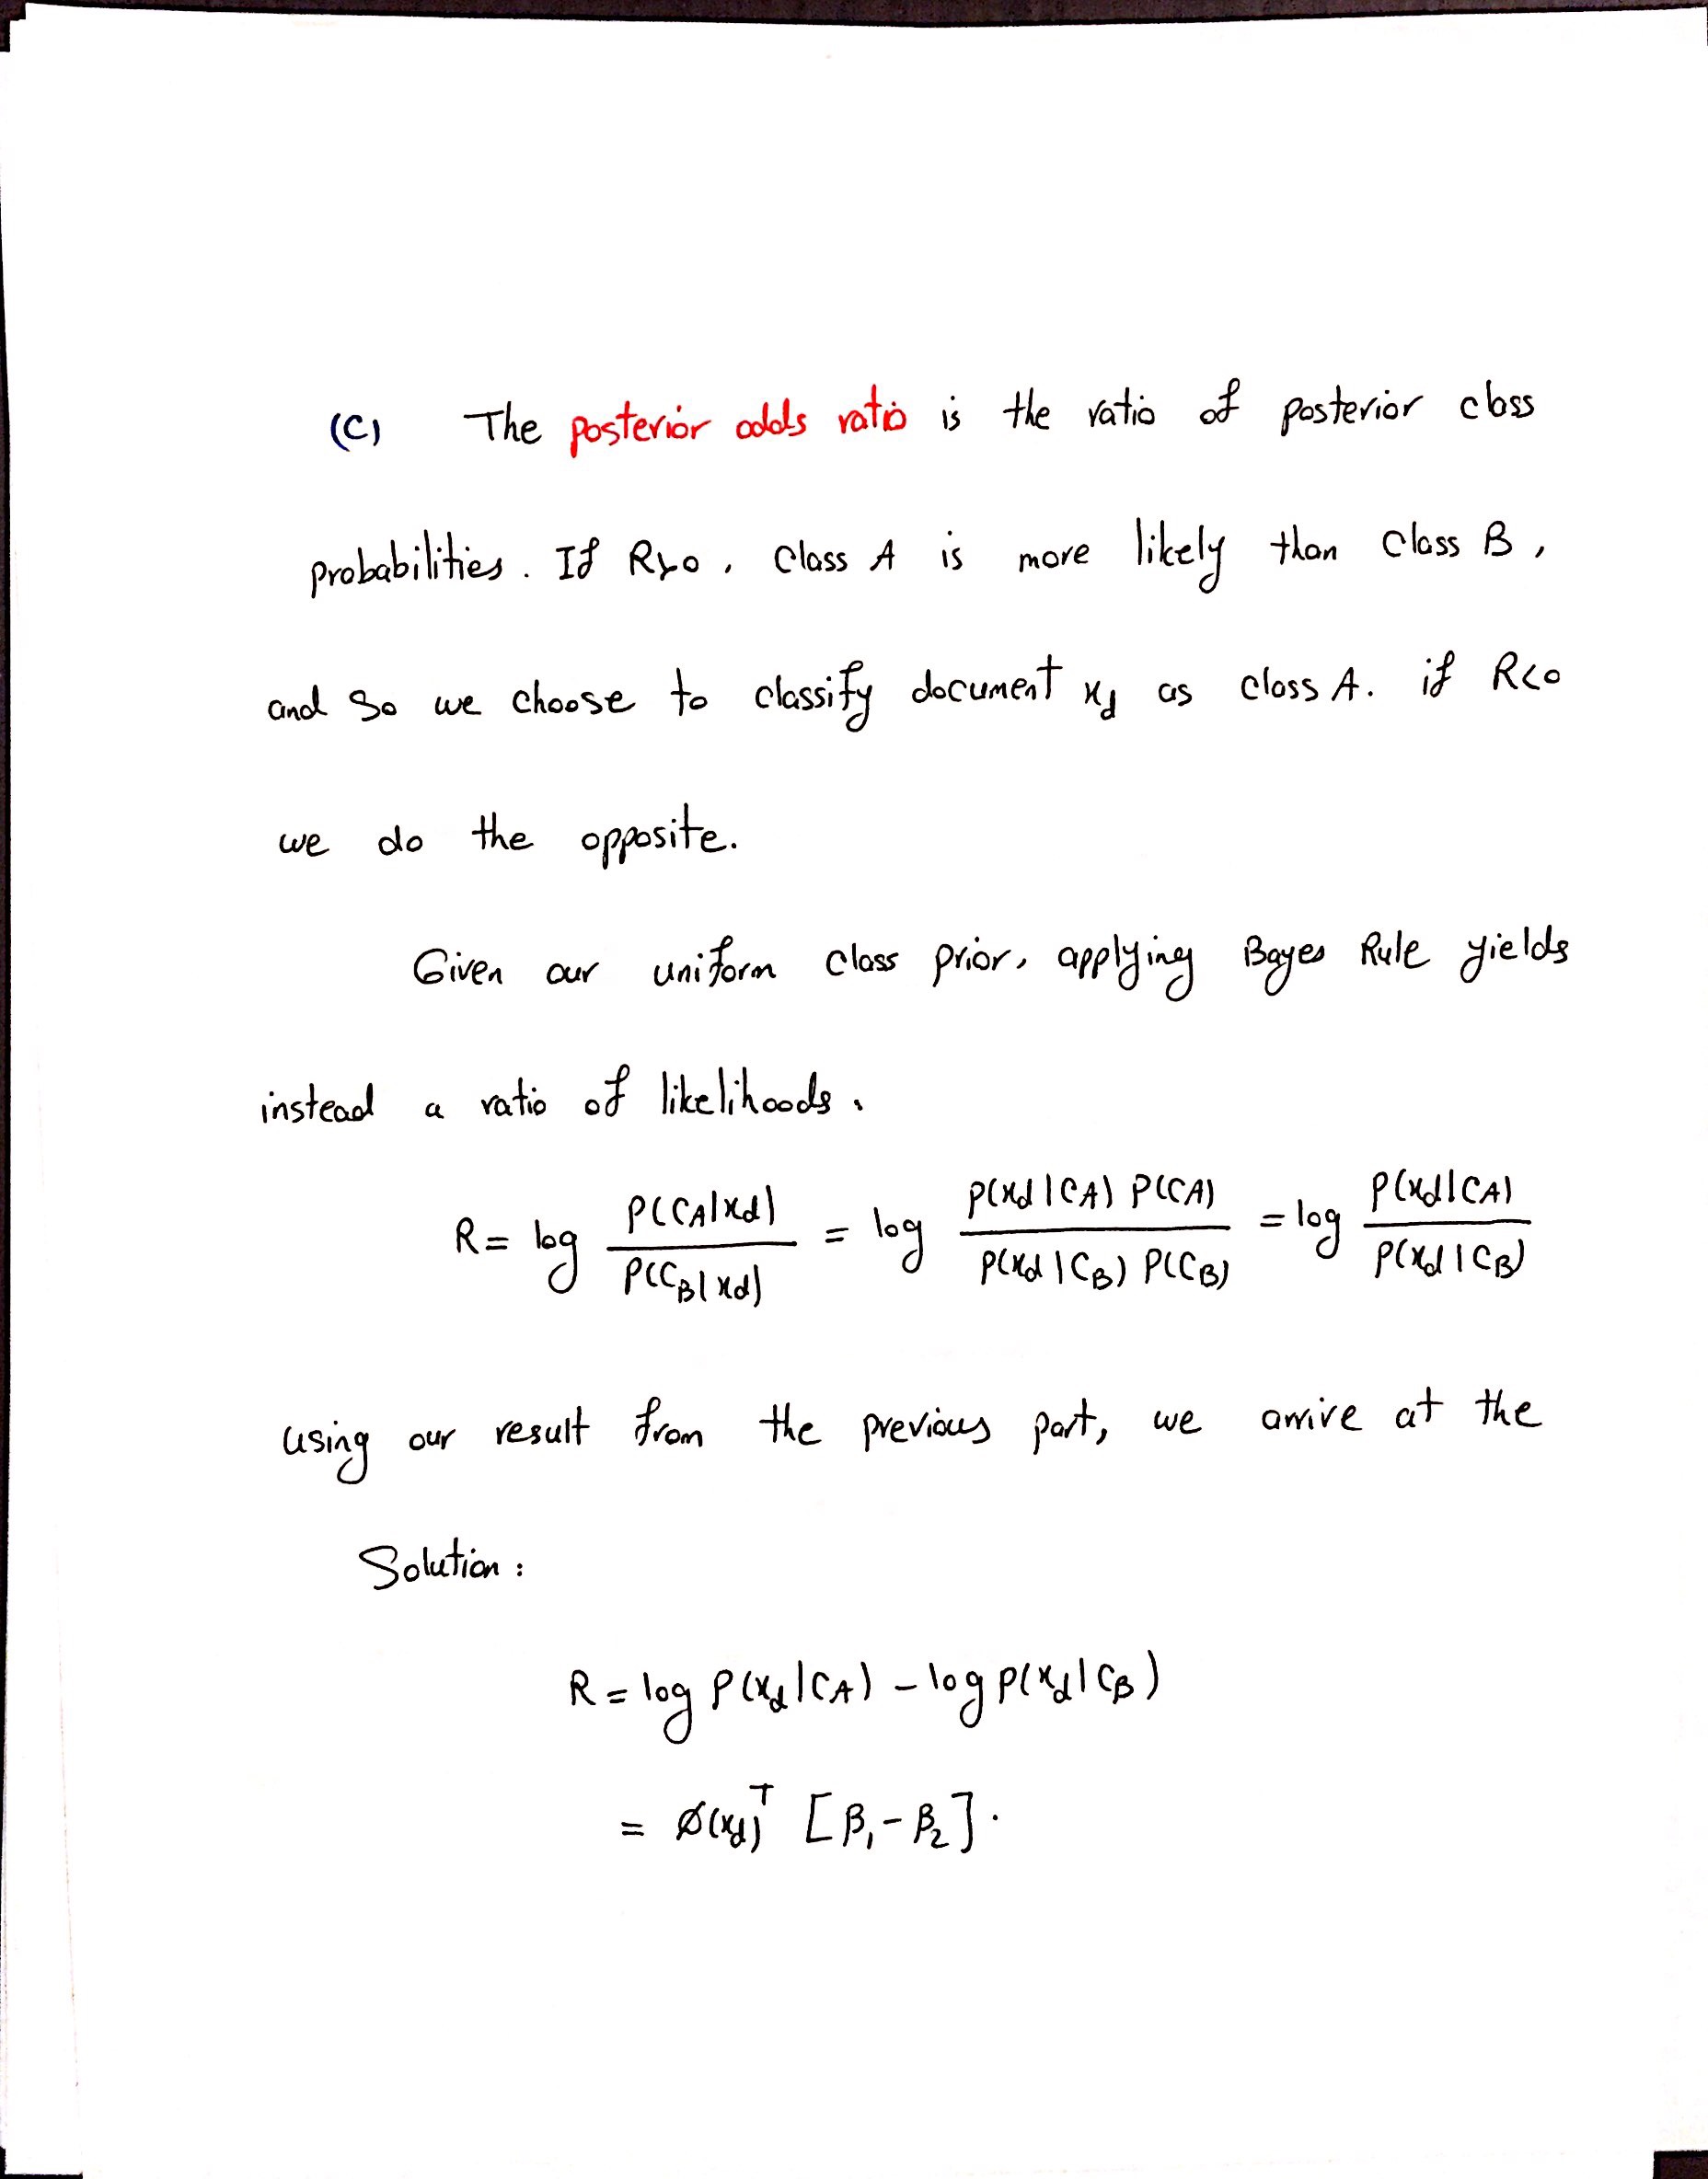 (C) The posterior odds ratio is the ratio of posterior class
probabilities. If R>0, Class A is more likely than Class B,
and so we choose to classify document x_d as class A. if R<0
we do the opposite.
Given our uniform class prior, applying Bayes Rule yields
instead a ratio of likelihoods.
R = log P(C_A|x_d) / P(C_B|x_d) = log P(x_d|C_A) P(C_A) / P(x_d|C_B) P(C_B) = log P(x_d|C_A) / P(x_d|C_B)
using our result from the previous part, we arrive at the
Solution:
R = log P(x_d|C_A) - log P(x_d|C_B)
= Ø(x_d)^T [β_1 - β_2].